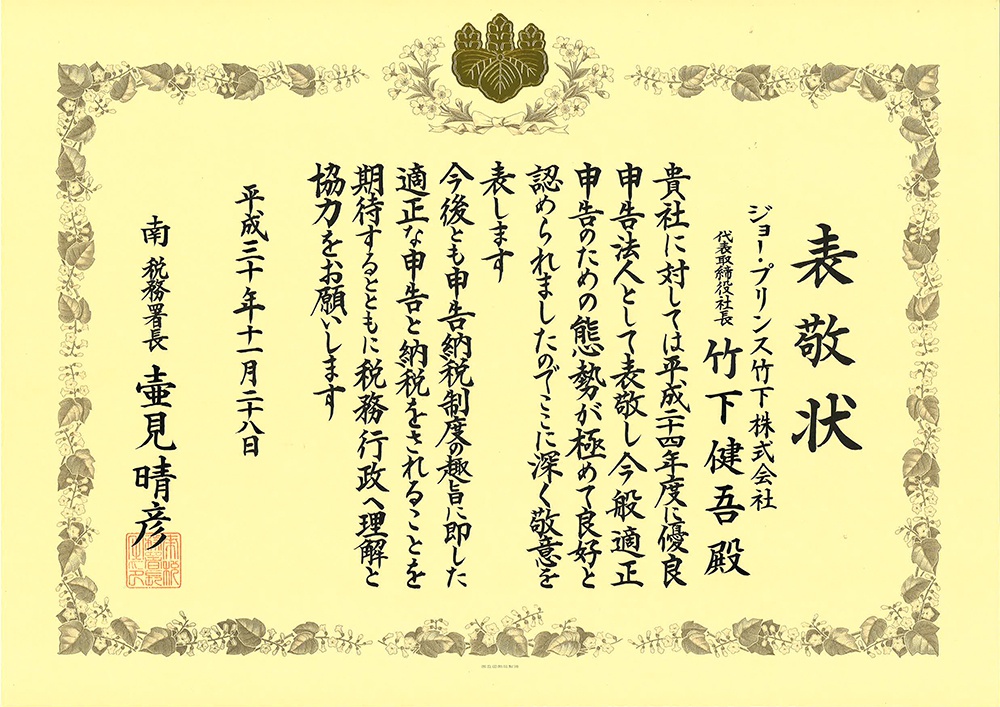 表敬状
ジョー・プリンス竹下株式会社
代表取締役社長 竹下健吾殿
貴社に対しては平成二十四年度に優良
申告法人として表敬し今般適正
申告のための態勢が極めて良好と
認められましたのでここに深く敬意を
表します
今後とも申告納税制度の趣旨に即した
適正な申告と納税をされることを
期待するとともに税務行政へ理解と
協力をお願いします
平成三十年十一月二十八日
南税務署長 壷見晴彦